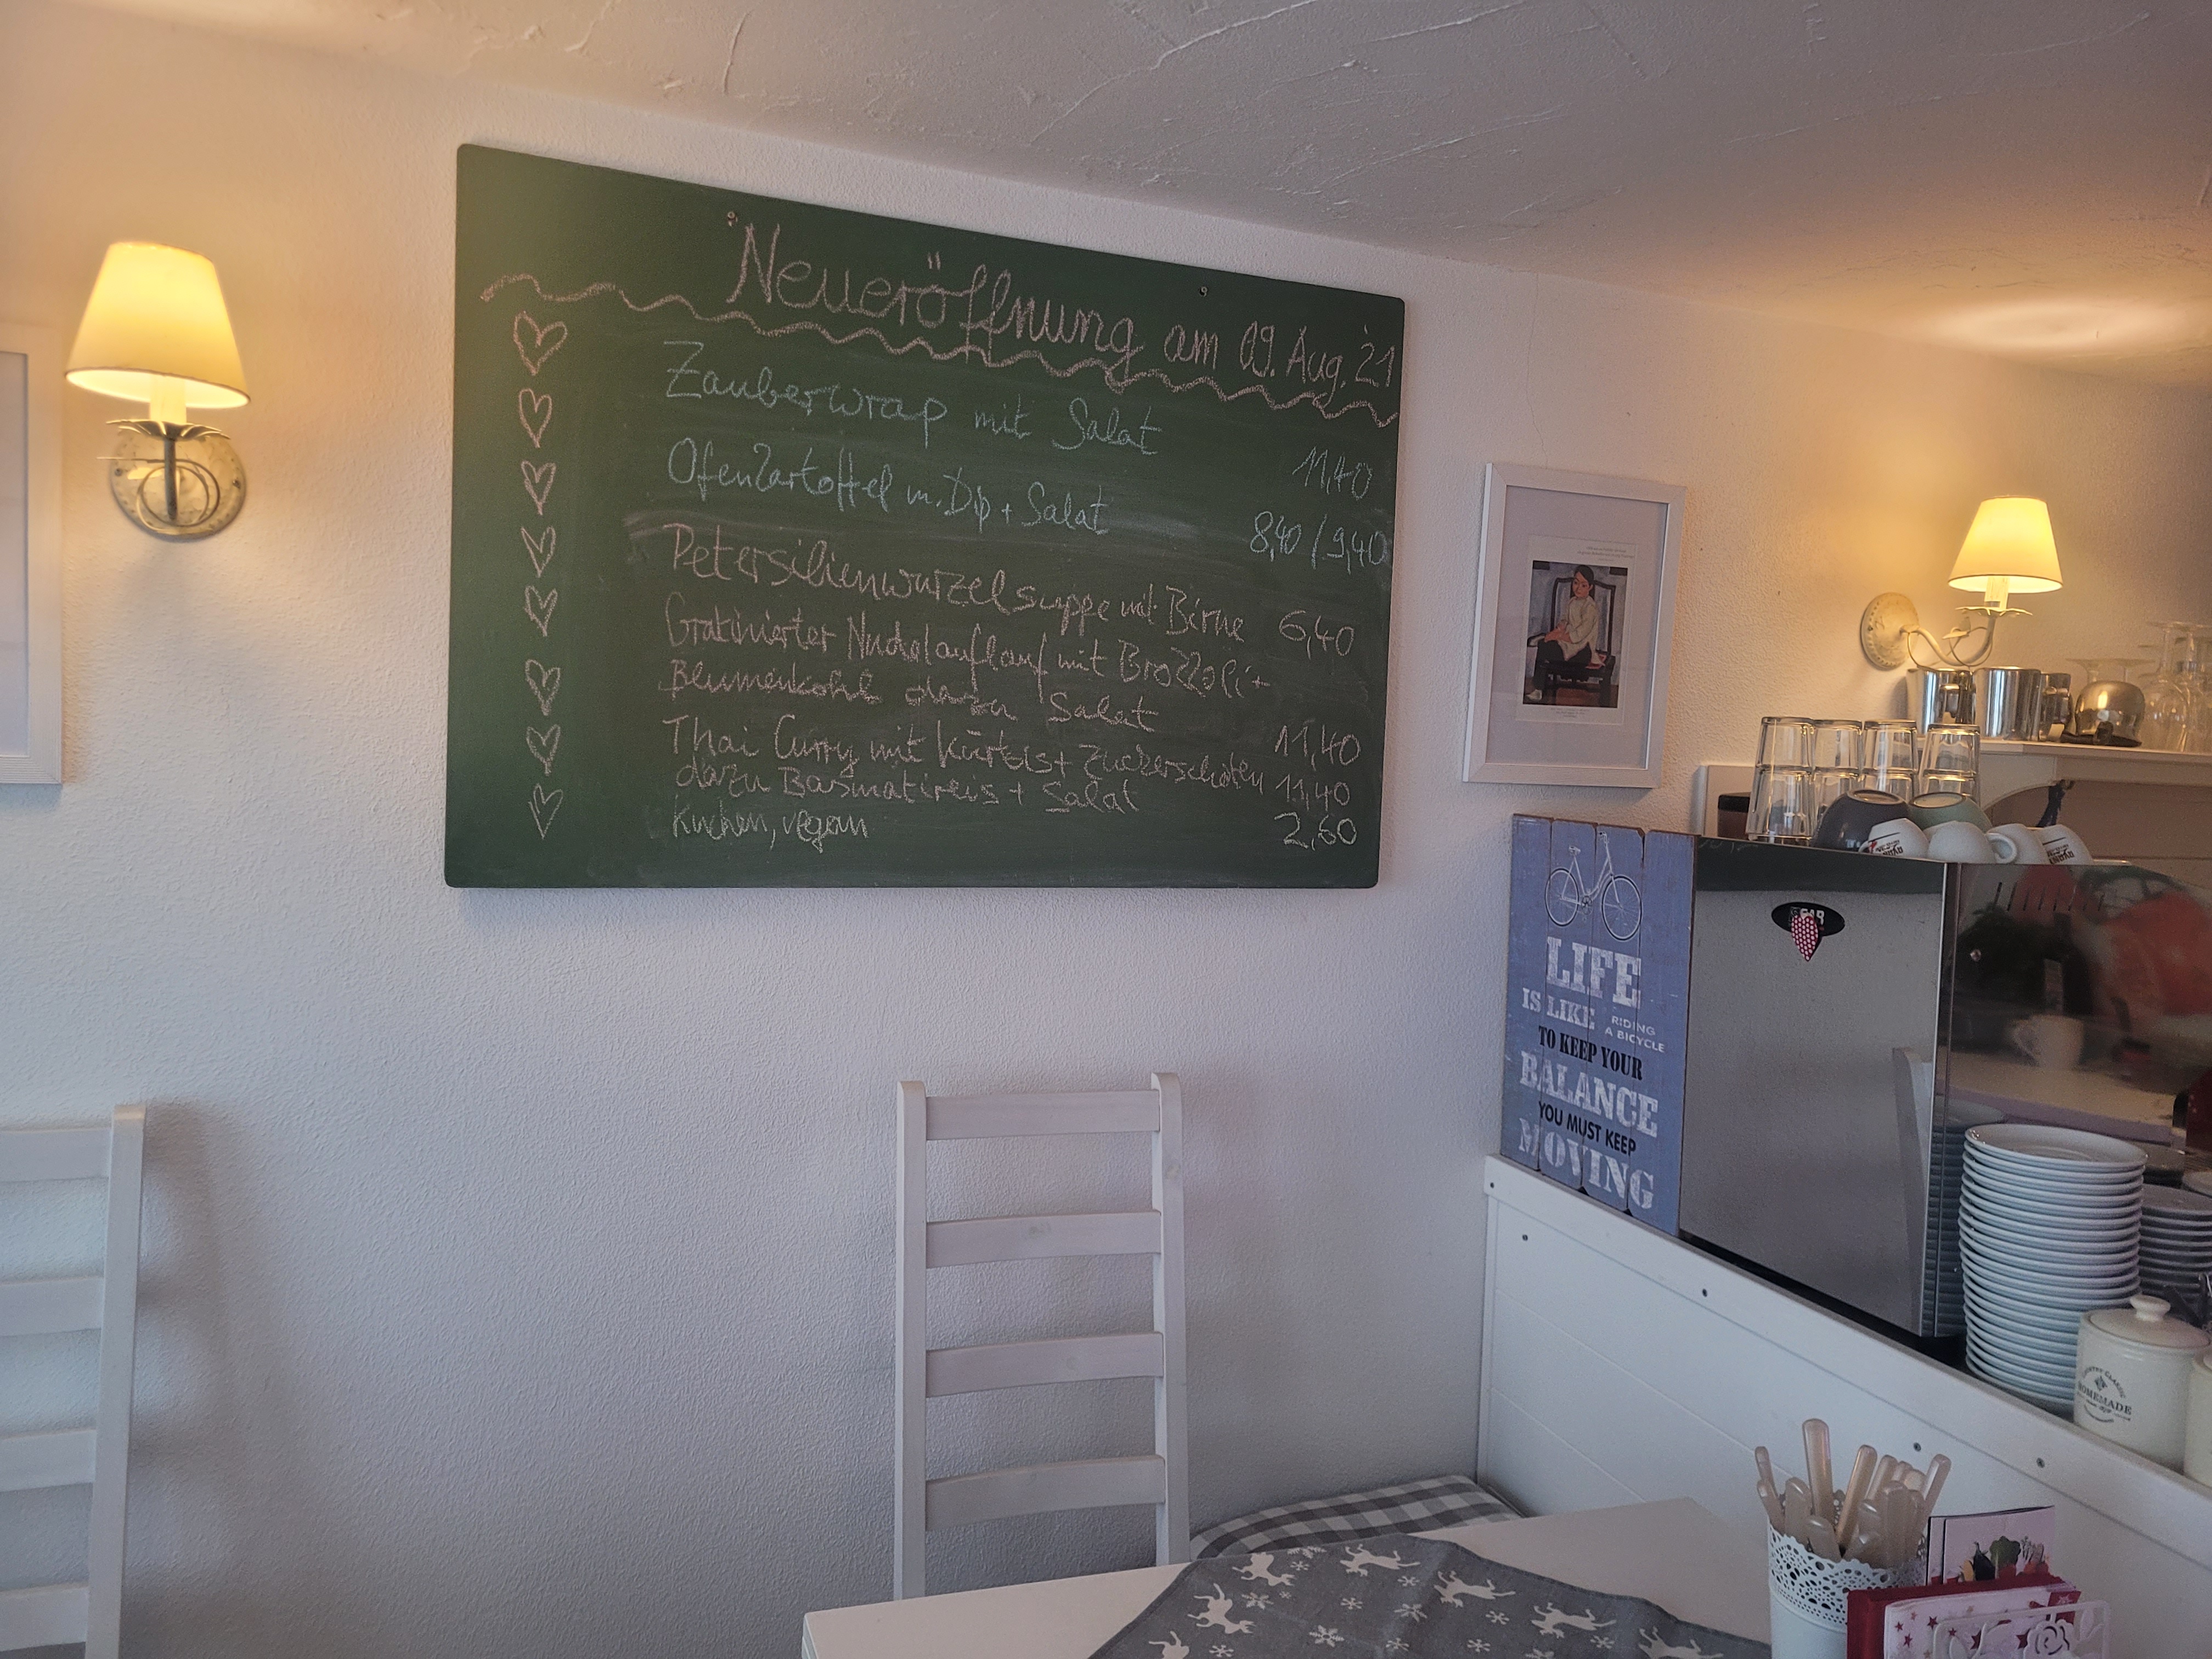 Neueröffnung am 09. Aug. 21
Zauberwrap mit Salat 11,40
Ofenkartoffel m. Dip + Salat 8,40 / 9,40
Petersilienwurzelsuppe mit Birne 6,40
Gratinierter Nudelauflauf mit Brokkoli +
Blumenkohl dazu Salat 11,40
Thai Curry mit Kürbis + Zuckerschoten
dazu Basmatireis + Salat 11,40
Kuchen, vegan 2,60
LIFE
IS LIKE RIDING
A BICYCLE
TO KEEP YOUR
BALANCE
YOU MUST KEEP
MOVING
HOMEMADE